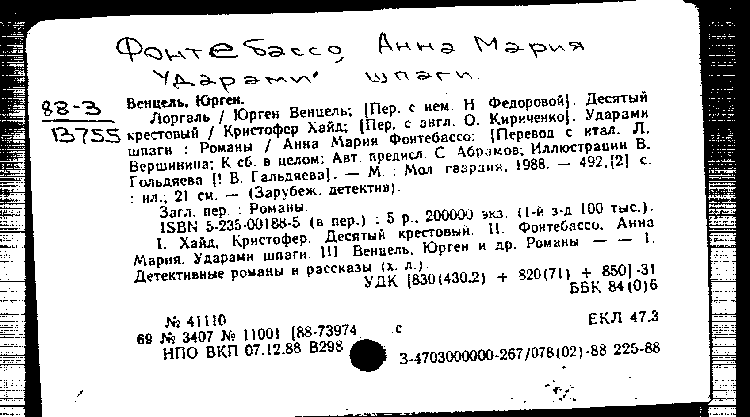 Фонтебассо, Анна Мария
Ударами шпаги.
88-3
В755
Венцель, Юрген.
Лоргаль / Юрген Венцель; [Пер. с нем. Н Федоровой]. Десятый
крестовый / Кристофер Хайд; [Пер. с англ. О. Кириченко]. Ударами
шпаги : Романы / Анна Мария Фонтебассо; [Перевод с итал. Л.
Вершинина; К сб. в целом: Авт. предисл. С Абрамов; Иллюстрации В.
Гольдяева [! В. Гальдяева]. — М. : Мол гвардия, 1988. — 492,[2] с.
: ил.; 21 см. — (Зарубеж. детектив).
Загл. пер. : Романы.
ISBN 5-235-00188-5 (в пер.) : 5 р., 200000 экз. (1-й з-д 100 тыс.).
I. Хайд, Кристофер. Десятый крестовый. II. Фонтебассо, Анна
Мария. Ударами шпаги. III Венцель, Юрген и др. Романы — — 1.
Детективные романы и рассказы (х. л.).
УДК [830(430.2) + 820(71) + 850]-31
ББК 84(0)6
№ 41110
69 № 3407 № 11001 [88-73974 с
ЕКЛ 47.3
НПО ВКП 07.12.88 В298
3-4703000000-267/078(02)-88 225-88